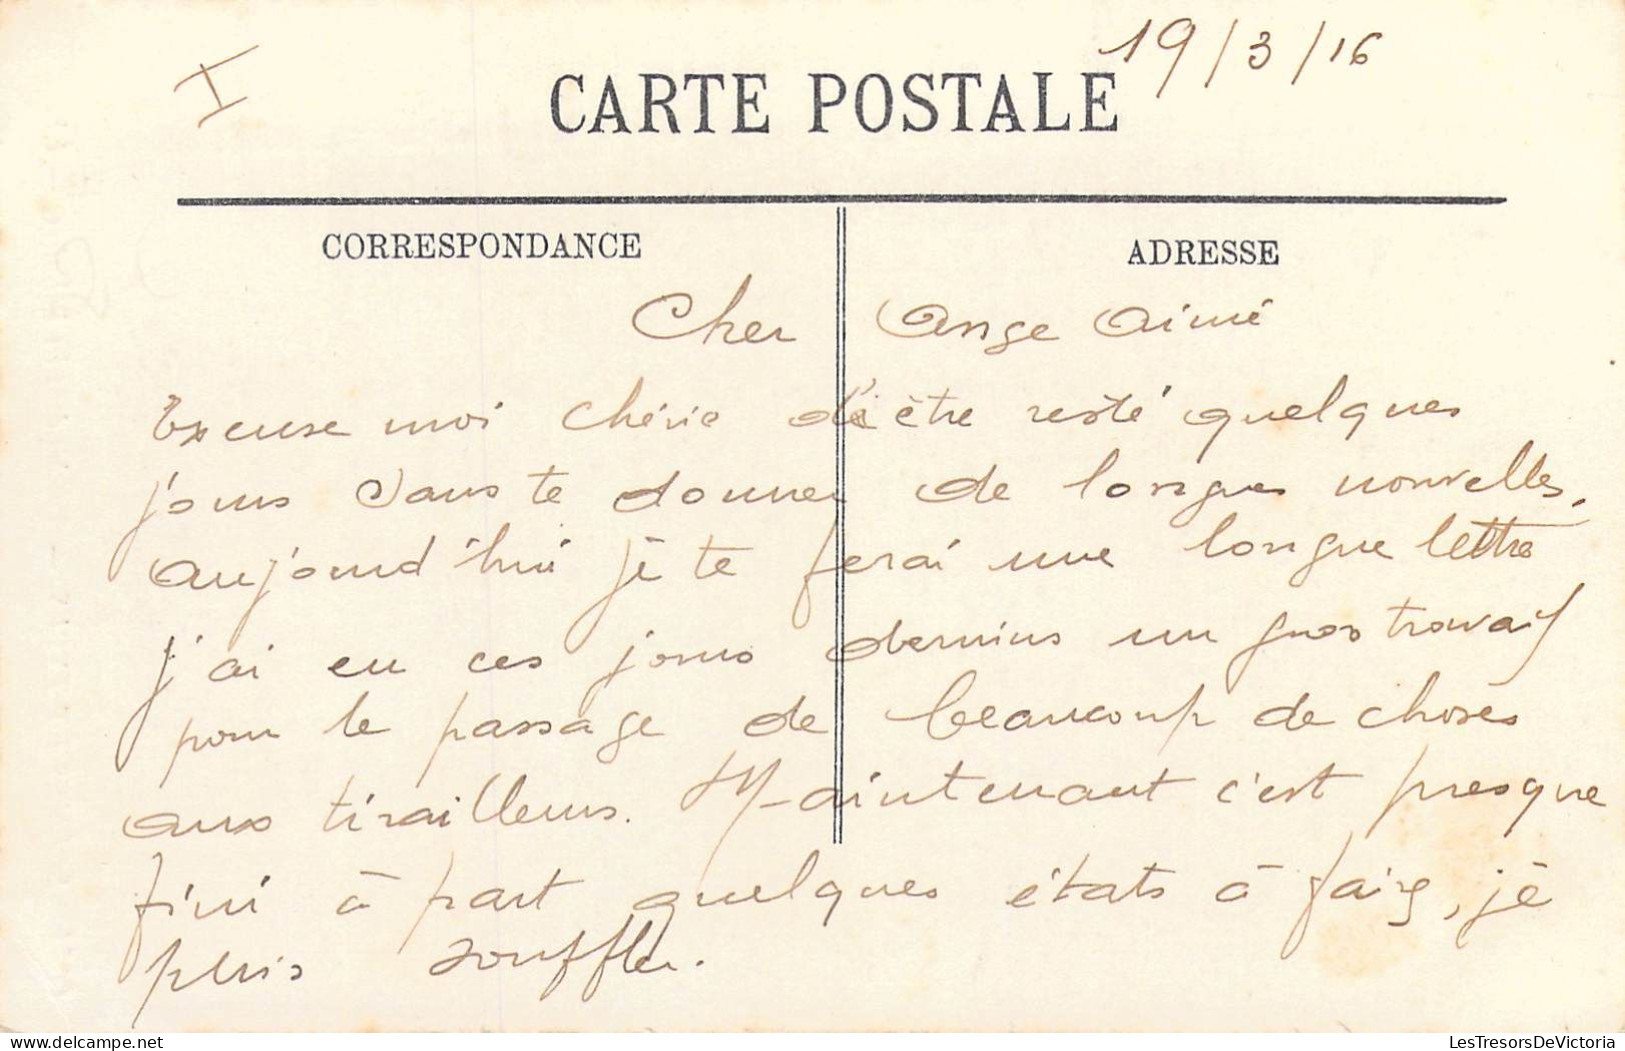 I
19/3/16
CARTE POSTALE
CORRESPONDANCE
ADRESSE
Cher Ange Aimé
Excuse moi chérie d'être resté quelques
jours sans te donner de longues nouvelles.
aujourd'hui je te ferai une longue lettre
j'ai eu ces jours derniers un gros travail
pour le passage de beaucoup de choses
aux tirailleurs. Maintenant c'est presque
fini à part quelques états à faire, je
puis souffler.
LesTresorsDeVictoria
delcampe.net